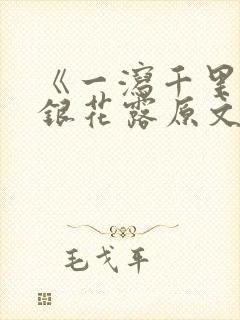 《一泻千里
银花露原文
毛戈平